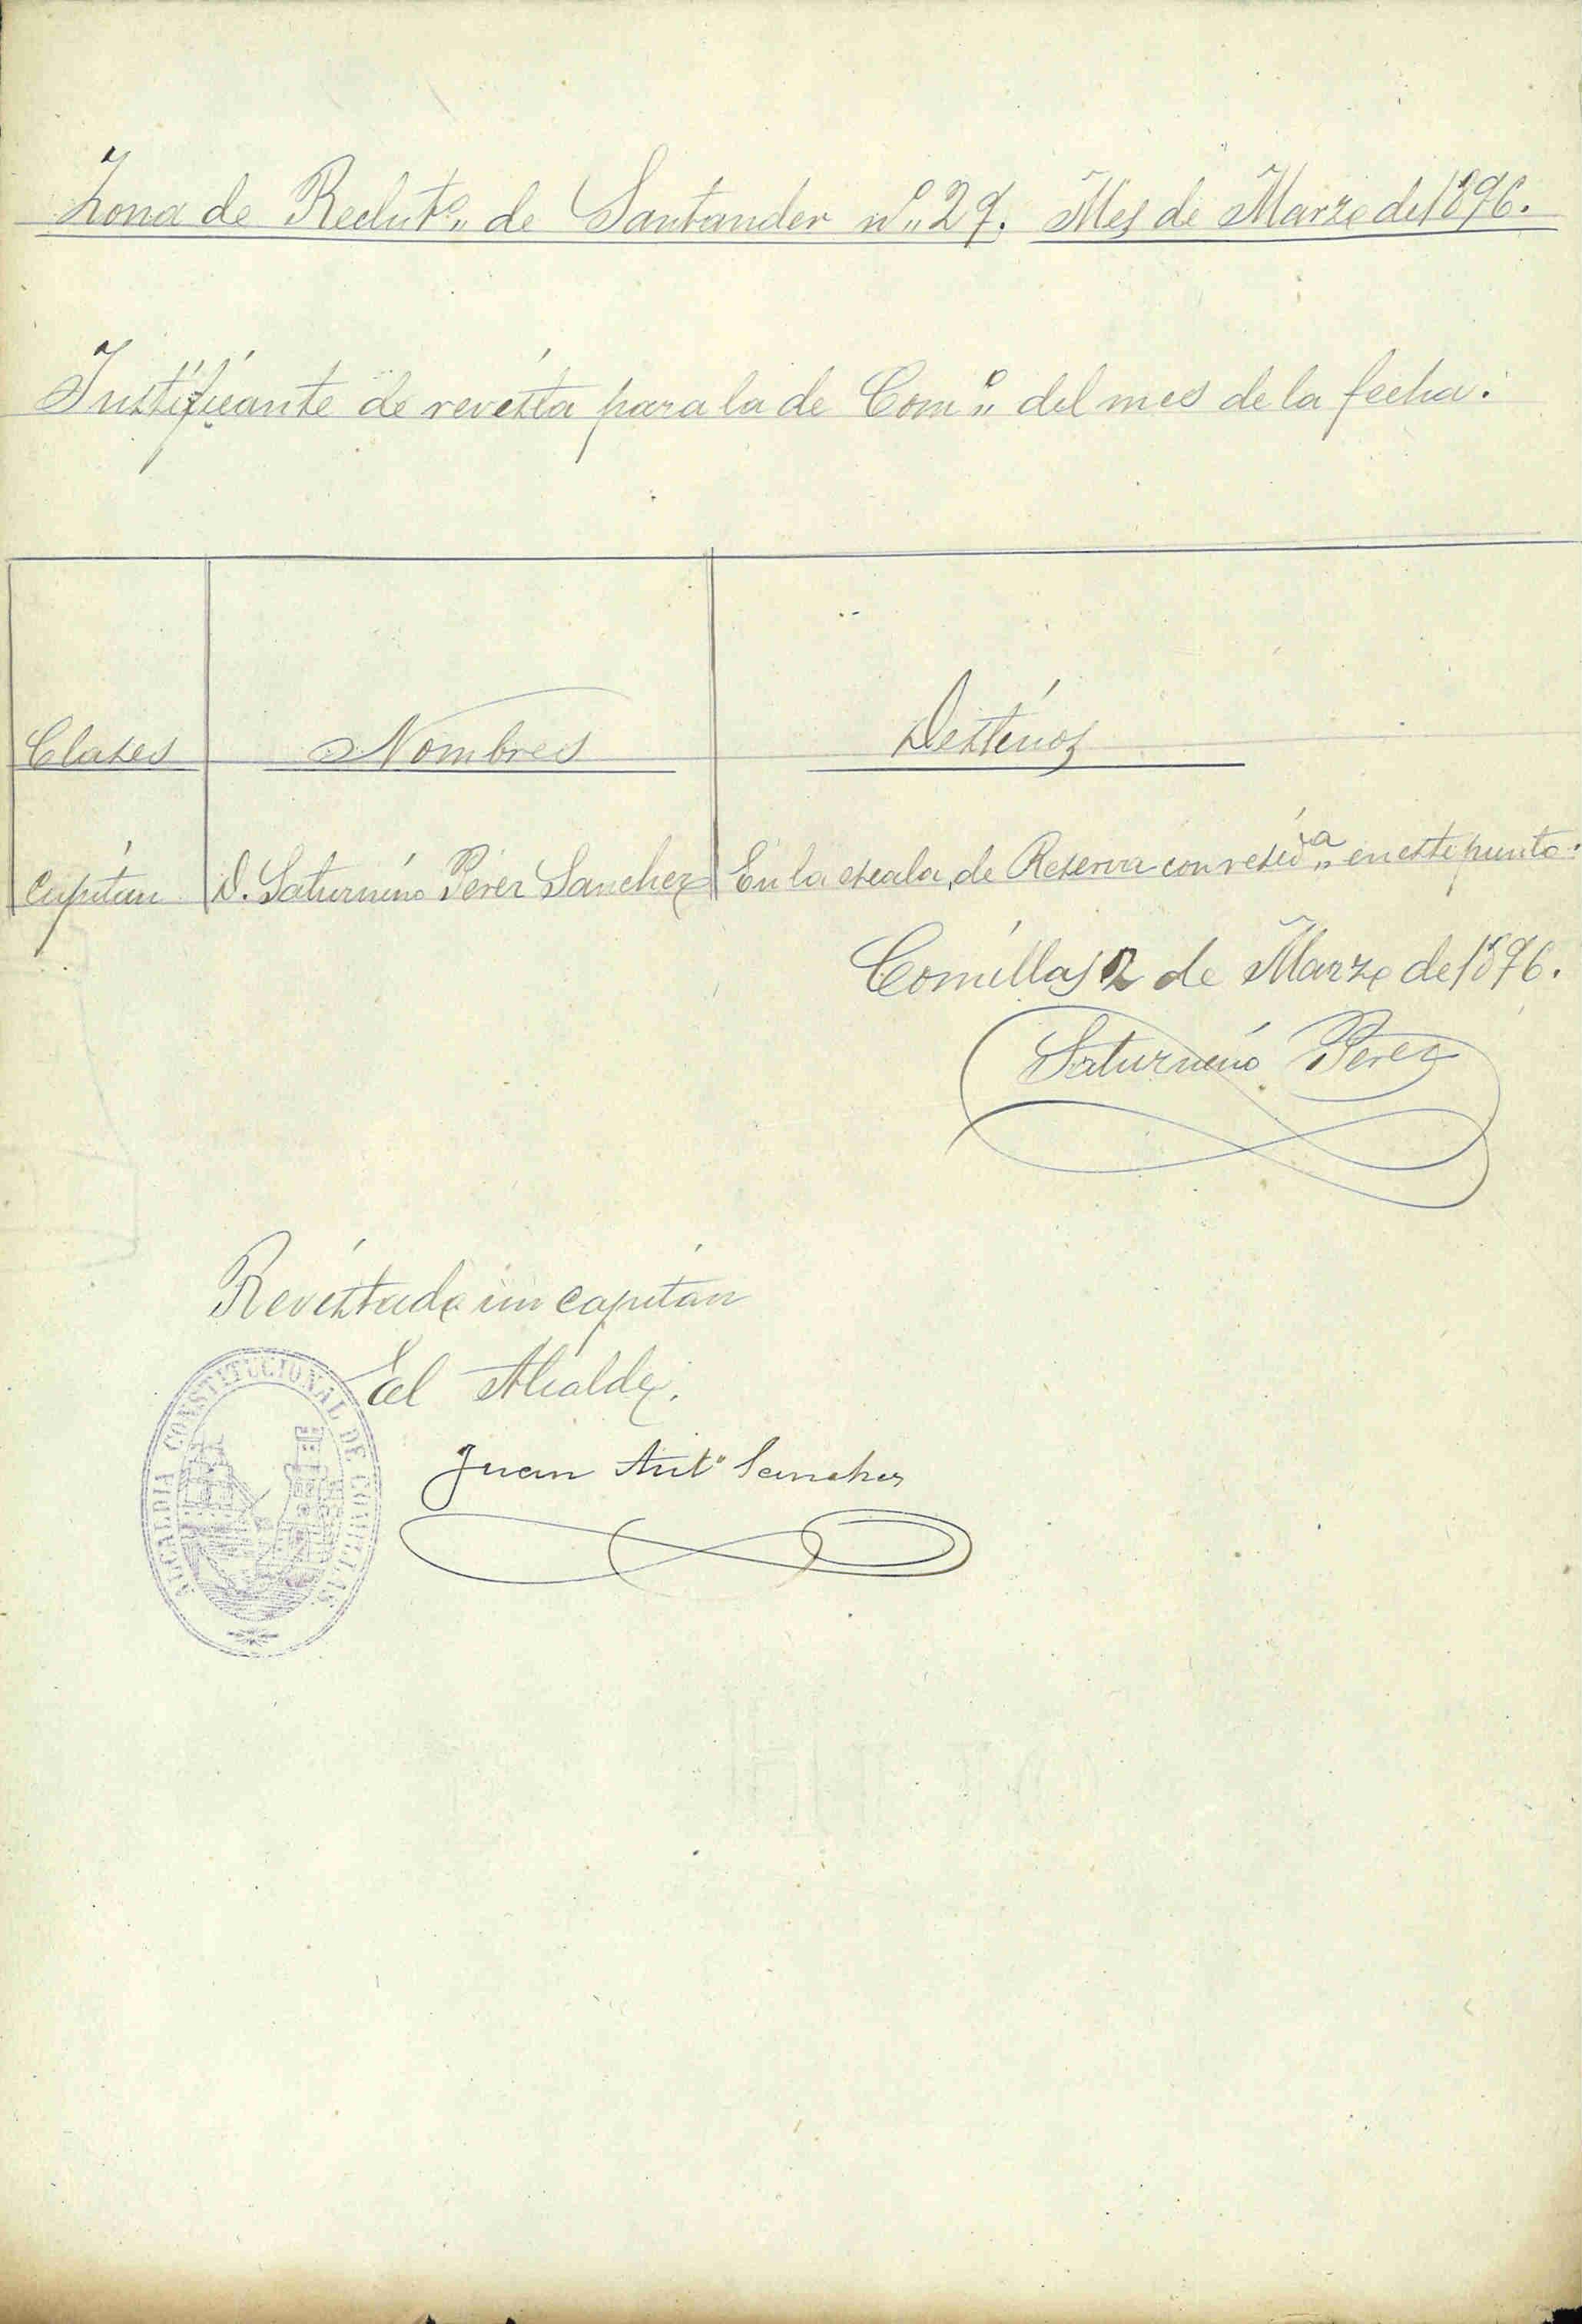 Zona de Reclutº„ de Santander nº„ 29. Mes de Marzo de 1896.
Justificante de revista para la de Comº„ del mes de la fecha.
Clases Nombres Destinos
Capitán D. Saturnino Pérez Sanchez En la escala de Reserva con residª„ en este punto.
Comillas 2 de Marzo de 1896.
Saturnino Perez
Revistado un capitán
El Alcalde.
Juan Antº Sanchez
ALCALDIA CONSTITUCIONAL DE COMILLAS